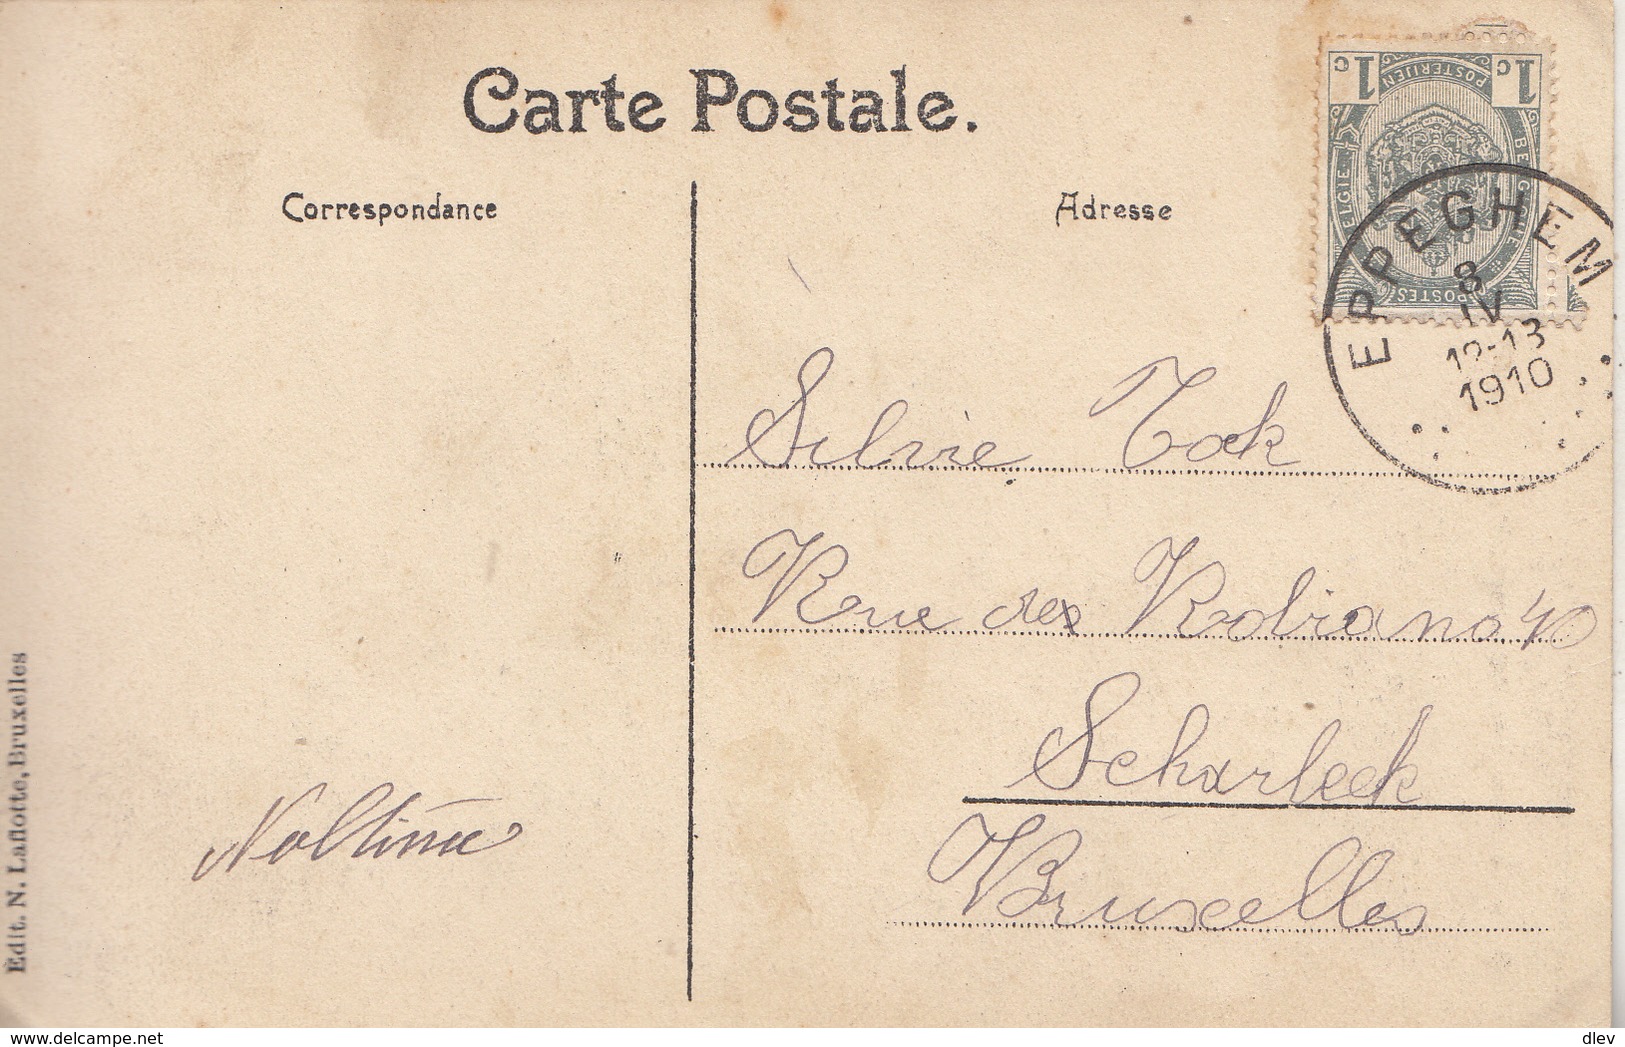 Carte Postale.
Correspondance
Adresse
1c 1c
POSTERIJEN
BELGIE BELGIQUE
POSTES
EPPEGHEM
8
IV
12-13
1910
Silvie Tock
Rue des
Scharleek
Bruxelles
Edit. N. Laflotte, Bruxelles
delcampe.net
dlev